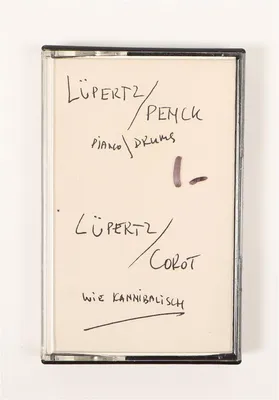 LÜPERTZ/
PENCK
PIANO/DRUMS
1.-
LÜPERTZ/
COROT
WIE KANNIBALISCH